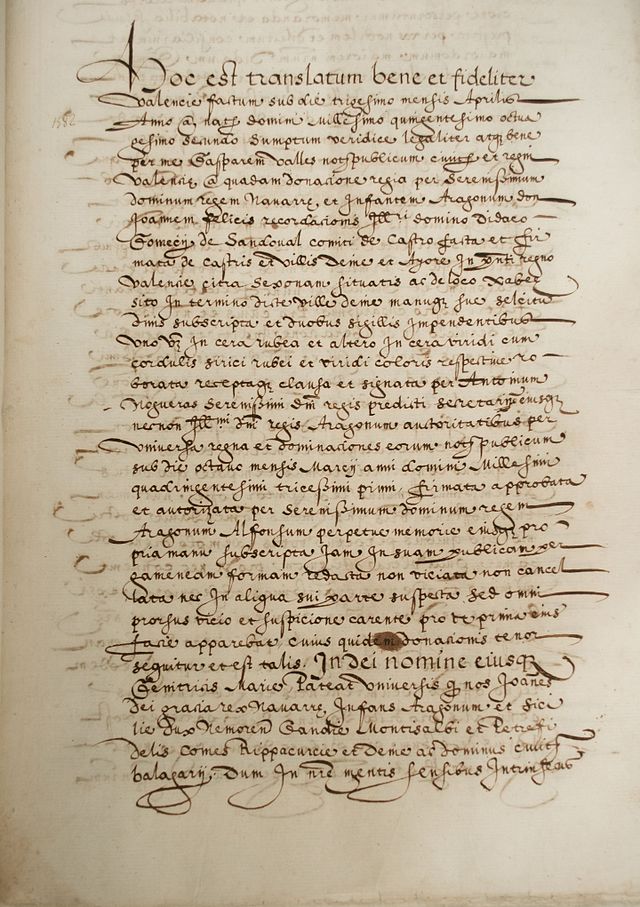 Hoc est translatum bene et fideliter
Valencie factum sub die trigesimo mensis Aprilis
1582
Anno a natte domini Millesimo quingentesimo octua
gesimo secundo sumptum veridice legaliter atqz bene
per me Gasparem Valles notm publicum civitts et regni
Valencie, a quadam donacione regia per serenissimum
dominum regem Navarre, et infantem Aragonum don
Joannem felicis recordacionis Illri domino Didaco
Gomecij de Sandoval comiti de Castro facta et fir
mata de castris et villis Deme et Ayore in pnti regno
Valencie citra Sexonam situatis ac de loco Xabee
sito in termino dicte ville Deme manuqz sue solicitu
dinis subscripta et duobus sigillis impendentibus
uno vz in cera rubea et altero in cera viridi cum
cordulis sirici rubei et viridi coloris respective ro
borata receptaqz clausa et signata per Antonium
Nogueras serenissimi dni regis prediti secretarium eiusqz
necnon Illmi dni regis Aragonum autoritatibus per
universa regna et dominaciones eorum notm publicum
sub die octavo mensis Marcij anni domini Millesimi
quadringentesimi tricessimi primi, firmata approbata
et autorizata per serenissimum dominum regem
Aragonum Alfonsum perpetue memorie eiusqz pro
pria manu subscripta jam in suam publicam per
gameneam formam redacta non viciata non cancel
lata nec in aliqua sui parte suspecta sed omni
prorsus vicio et suspicione carente pro ut prima eius
facie apparebat cuius quidem donacionis tenor
sequitur et est talis. In dei nomine eiusqz
Genitricis Marie, Pateat universis q nos Joanes
Dei gracia rex Navarre, Infans Aragonum et Sici
lie Dux Nemoren Gandie Montisalbi et Petrefi
delis Comes Rippacurcie et Deme ac dominus civitts
Balagarij. Dum in nre mentis sensibus intrinsecus